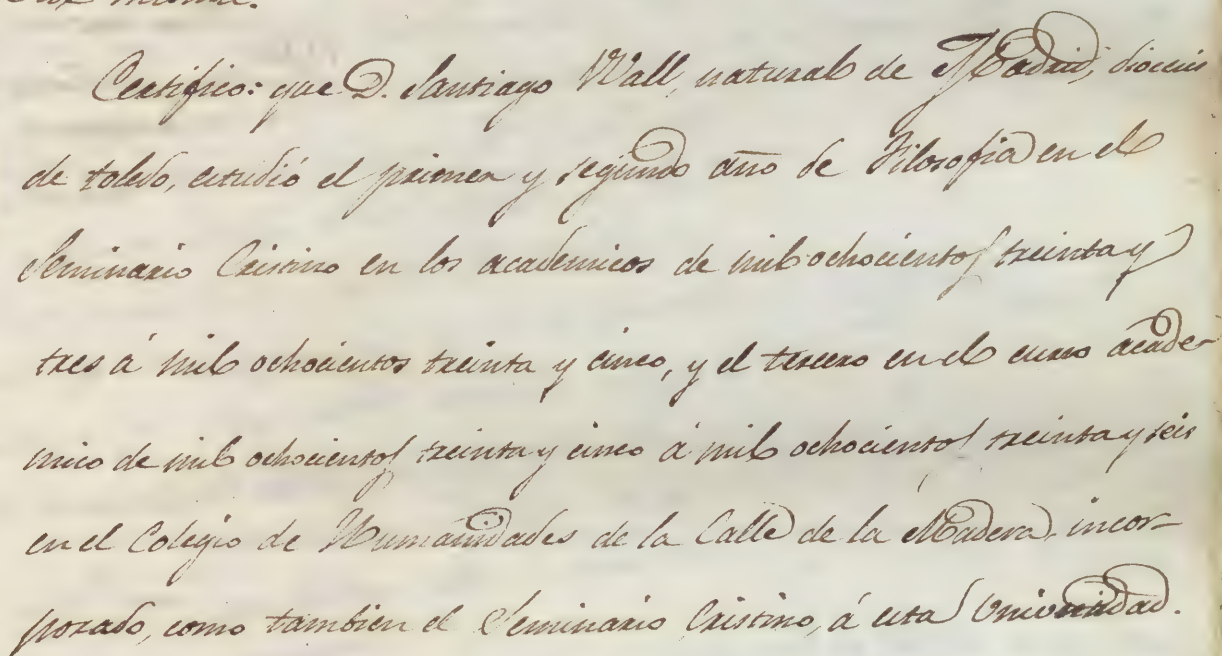 misma.
Certifico: que D. Santiago Wall, natural de Madrid, diocesis
de toledo, estudió el primer y segundo año de Filosofia en el
Seminario Cristino en los academicos de mil ochocientos treinta y
tres á mil ochocientos treinta y cinco, y el tercero en el curso acade-
mico de mil ochocientos treinta y cinco á mil ochocientos treinta y seis
en el Colegio de Humanidades de la Calle de la Madera, incor-
porado, como tambien el Seminario Cristino, á esta Universidad.